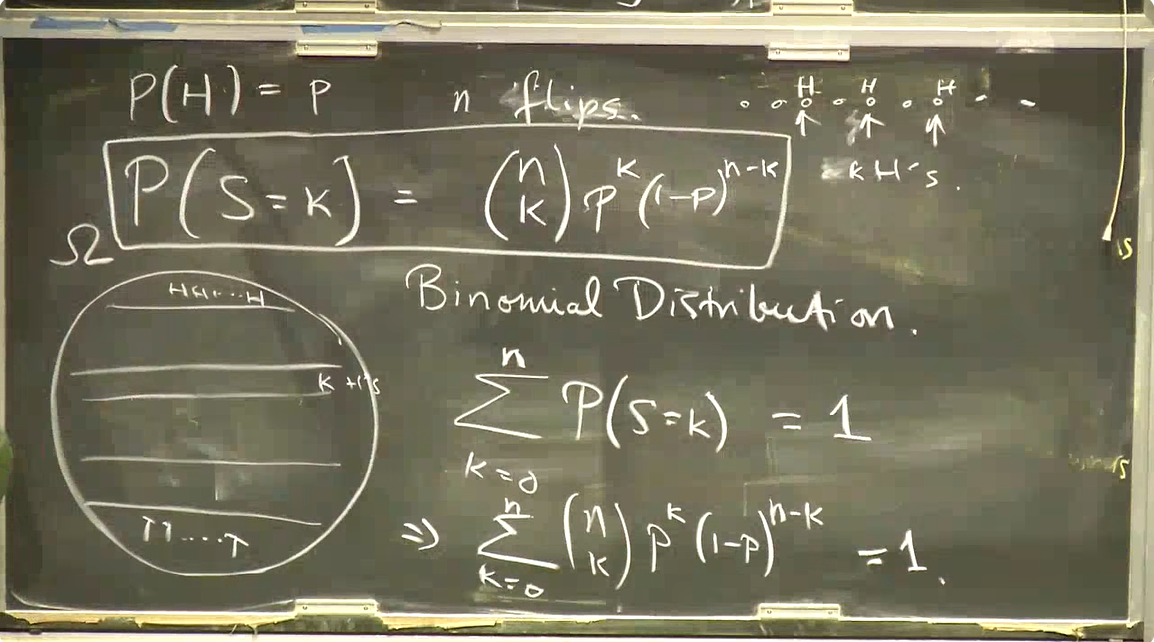 P(H) = p n flips.
H H H
P(S=k) = (n k) p^k (1-p)^{n-k}
k H's.
Ω
HH...H
k H's
TT....T
Binomial Distribution.
∑_{k=0}^{n} P(S=k) = 1
⇒ ∑_{k=0}^{n} (n k) p^k (1-p)^{n-k} = 1.